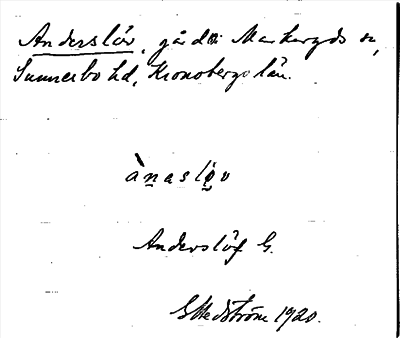 Anderslöv, gård i Markaryds sn,
Sunnerbo hd, Kronobergs län.
ànaslöv
Anderslöf G.
G Hedström 1920.